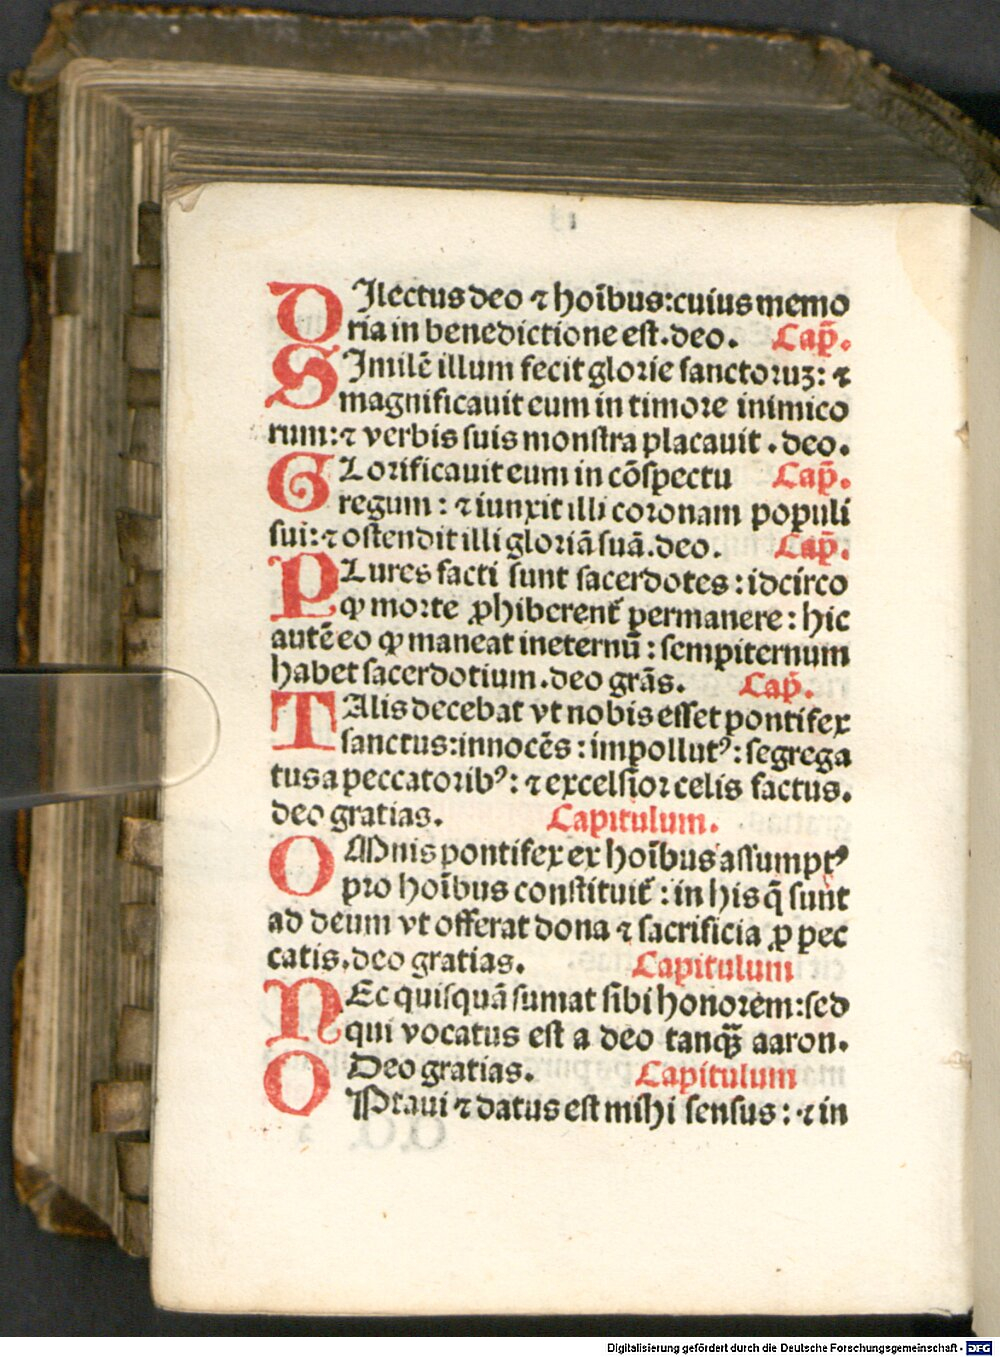 DIlectus deo ⁊ hoı̄bus: cuius memo
ria in benedictione est. deo. Cap̄.
SImilē illum fecit glorie sanctoruꝫ: ⁊
magnificauit eum in timore inimico
rum: ⁊ verbis suis monstra placauit . deo.
GLorificauit eum in cōspectu Cap̄.
regum : ⁊ iunxit illi coronam populi
sui: ⁊ ostendit illi gloriā suā. deo. Cap̄.
PLures facti sunt sacerdotes : idcirco
ꝙ morte ꝓhiberent̄ permanere : hic
autē eo ꝙ maneat ineternū : sempiternum
habet sacerdotium. deo grās. Cap̄.
TAlis decebat vt nobis esset pontifex
sanctus: innocēs : impollutꝰ: segrega
tus a peccatoribꝰ: ⁊ excelsior celis factus.
deo gratias. Capitulum.
OMnis pontifex ex hoı̄bus assumptꝰ
pro hoı̄bus constituit̄ : in his q̄ sunt
ad deum vt offerat dona ⁊ sacrificia ꝓ pec
catis. deo gratias. Capitulum
NEc quisquā sumat sibi honorem: sed
qui vocatus est a deo tanqꝫ̄ aaron.
Deo gratias. Capitulum
OPtaui ⁊ datus est mihi sensus : ⁊ in
Digitalisierung gefördert durch die Deutsche Forschungsgemeinschaft - DFG